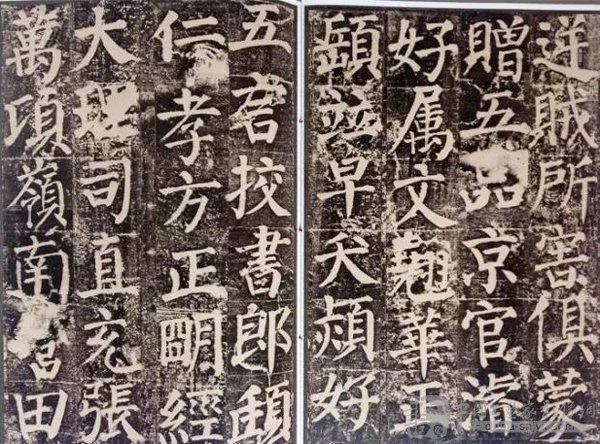 逆賊所害俱蒙
贈五品京官濬
好属文翹華正
顗竝早夭頍好
五君挍書郎頲
仁孝方正明經
大理司直充張
萬頃嶺南營田